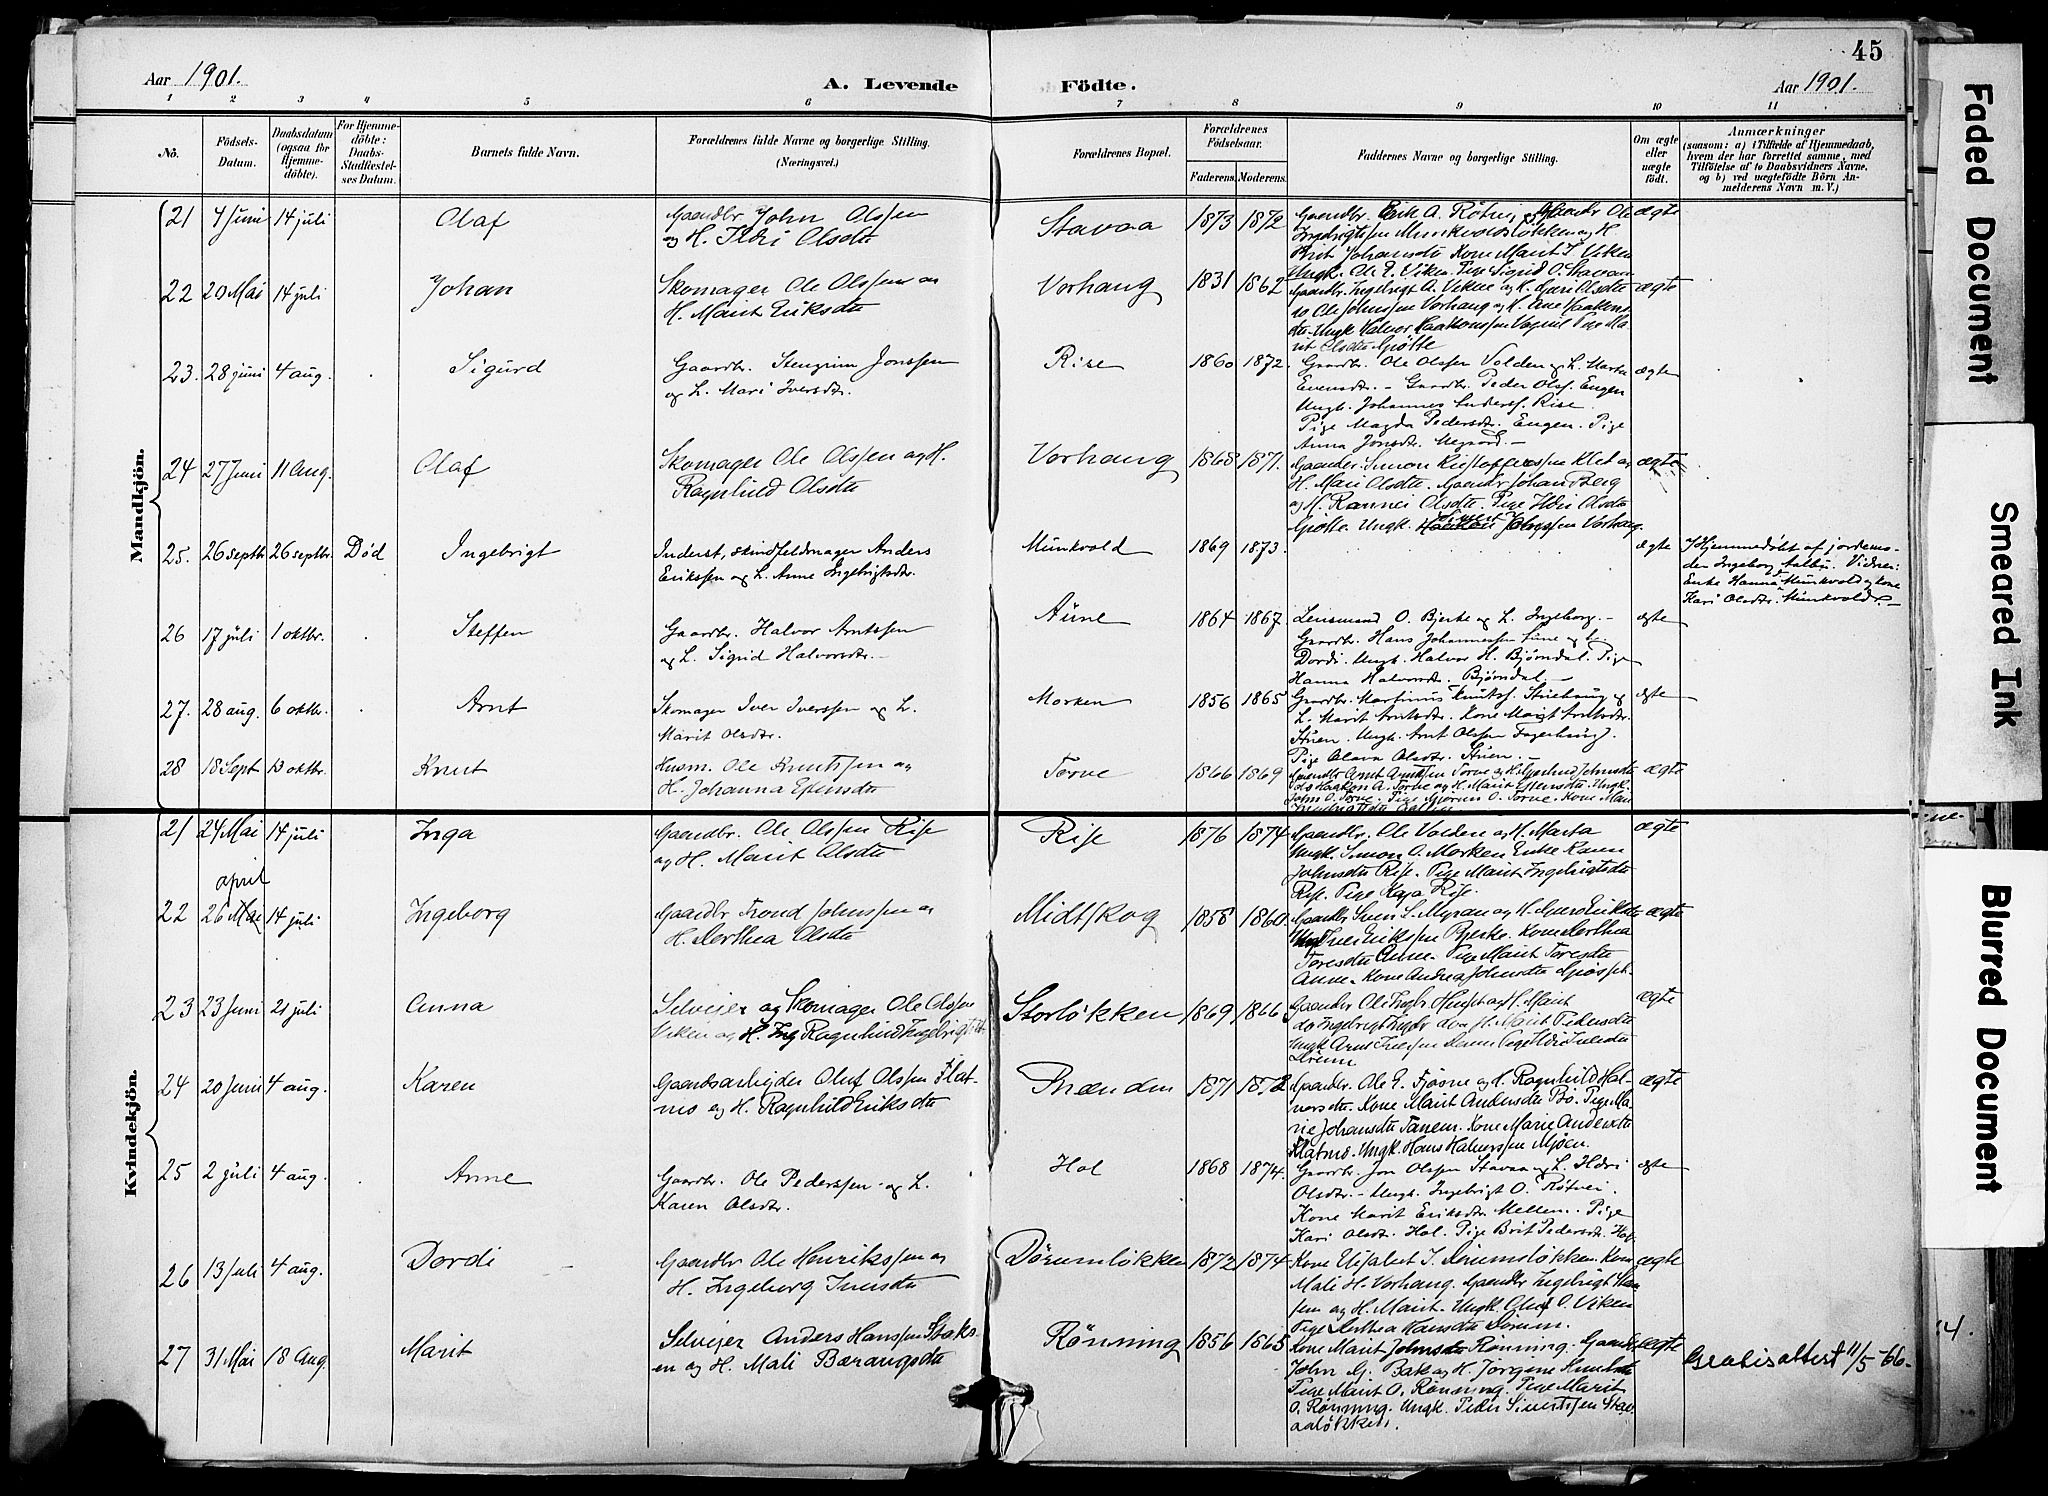 45
Aar 1901.
A. Levende Födte.
Aar 1901.
1 2 3 4 5 6 7 8 9 10 11
No.
Födsels-Datum.
Daabsdatum (ogsaa for Hjemme-döbte).
For Hjemme-döbte: Daabs-Stadfæstel-ses Datum.
Barnets fulde Navn.
Forældrenes fulde Navne og borgerlige Stilling. (Næringsvei.)
Forældrenes Bopæl.
Forældrenes Födselsaar.
Faderens. Moderens.
Faddernes Navne og borgerlige Stilling.
Om ægte eller uægte födt.
Anmærkninger
(saasom: a) i Tilfælde af Hjemmedaab,
hvem der har forrettet samme, med
Tilföielse af to Daabsvidners Navne,
og b) ved uægtefödte Börn An-
melderens Navn m. V.)
Mandkjön.
21 4 Juni 14 juli Olaf Gaardbr John Olssen
og H. Ildri Olsdtr
Stavaa 1873 1872 Gaardbr. Erik A. Rötvei, Gaardbr Ole
Ingebrigtssen Munkvoldsløkken og H.
Brit Johansdtr Kone Marit I. Viken
Ungk. Ole E. Viken. Pige Sigrid O. Stavaa
ægte
22 20 Mai 14 juli Johan Skomager Ole Olssen og
H. Marit Eriksdtr
Vorhaug 1831 1862 Gaardbr. Ingebrigt A. Vikne og H. Guri Olsdtr
do Ole Johnssen Vorhaug og H. Ane Haakens
dtr. Ungk Halvor Haakonssen Pige Ma
rit Olsdtr Gjötte
ægte
23. 28 juni 4 aug. Sigurd Gaardbr. Stengrim Jonssen
og H. Mari Iversdtr.
Rise 1860 1872. Gaardbr. Ole Olssen Volden og H. Marta
Evensdtr. - Gaardbr. Peder Olss. Engen
Ungk. Johannes Anderss. Rise.
Pige Magda Pedersdtr. Engen. Pige
Anna Jonsdtr. Megard. -
ægte
24 27 Juni 11 Aug. Olaf Skomager Ole Olssen og H.
Ragnhild Olsdtr
Vorhaug 1868 1871. Gaardbr. Simon Kristofferssen Klet og
H. Mari Olsdtr. Gaardbr Johan Berg
og H. Rannei Olsdtr. Pige Ildri Olsdtr
Gjötte. Ungk. Johnssen Vorhaug
ægte
25. 26 septb. 26 septbr. Död Ingebrigt Inderst, skindfeldmager Anders
Erikssen og H. Anne Ingebrigtsdtr.
Munkvold 1869 1873. ægte
Hjemmedöbt af jordemo-
den Ingeborg Aalbu. Vidner:
Enke Hanna Munkvold og kone
Kari Olsdtr. Munkvold. -
26 17 juli 1 oktbr. Steffen Gaardbr. Halvor Arntssen
og H. Sigrid Halvorsdtr. -
Aune 1864 1867. Lensmand O. Bjerke og H. Ingeborg. -
Gaardbr. Hans Johannessen Aune og H.
Dordi. Ungk. Halvor H. Bjørndal. Pige
Hanna Halvorsdtr. Bjørndal. -
ægte
27. 28 aug. 6 oktbr. Arnt Skomager Iver Iverssen og H.
Marit Olsdtr.
Morken 1856 1865 Gaardbr. Martinus Knutss. og
H. Marit Arntsdtr. Kone Marit Arntsdtr.
Stuen. Ungk. Arnt Olssen Fagerhaug.
Pige Olava Olsdtr. Stuen. -
ægte
28 18 Sept 13 oktbr. Knut Husm. Ole Knutssen og
H. Johanna Esunsdtr
Torve 1866 1869 Gaardbr Arnt Arntssen Torve og H.
do Haaken A. Torve og H. Marit Ungk.
John O. Torve. Pige Gjörun O. Torve. Kone Mari
ægte
Kvindekjön.
21 24 Mai 14 juli Inga Gaardbr. Ole Olssen Rise
og H. Marit Olsdtr
Rise 1876 1874 Gaardbr. Ole Volden og H. Marta
Ungk. Simon O. Morken Enke Karen
Johnsdtr Rise. Pige Marit Ingebrigtsdtr
Rise. Pige Kaja Rise.
ægte
april
22 26 Mai 14 juli Ingeborg Gaardbr Trond Johnssen og
H. Derthea Olsdtr
Midtskog 1858 1860. Gaardbr Sven S. Myran og H. Guro Eriksdtr
Ungk Iver Erikssen Bjerke. Kone Derthea
Toresdtr Aune. Pige Marit Toresdtr
Aune. Kone Andrea Johnsdtr
ægte
23 23 Juni 21 juli Anna Selveier og Skomager Ole Olssen
Viken og H. Ing. Ragnhild Ingebrigtsdtr
Storløkken 1869 1866 Gaardbr Ole Ingbr Hevset og H. Marit
do Ingebrigt H. Marit Pedersdtr
Ungk Arnt Iverssen Pige Ildri Iversdtr
ægte
24 20 Juni 4 aug. Karen Gaardsarbejder Oluf Olssen Flat-
mo og H. Ragnhild Eriksdtr
Brænden 1871 1872 Gaardbr. Ole E. Fjösne og H. Ragnhild Hal-
vorsdtr. Kone Marit Andersdtr Bö. Pige Ma-
rie Johansdtr Tanem. Kone Marie Andersdtr
Flatmo. Ungk. Hans Halvorssen Mjøen.
ægte
25 2 juli 4 aug. Anne Gaardbr. Ole Pederssen og H.
Karen Olsdtr.
Hol 1868 1874. Gaardbr. Jon Olssen Stavaa og H. Ildri
Olsdtr. - Ungk. Ingebrigt O. Røtvei.
Kone Marit Eriksdtr Mellem. Pige
Kari Olsdtr. Hol. Pige Brit Pedersdtr. Hol
ægte
26 13 juli 4 aug. Dordi Gaardbr Ole Henrikssen og
H. Ingeborg Iversdtr
Dörumløkken 1872 1874 Kone Elisabet I. Dörumsløkken. Kone
Mali H. Vorhaug. Gaardbr Ingebrigt Han
sen og H. Marit. Ungk. Oluf O. Viken
Pige Derthea Hansdtr Dörum.
ægte
27 31 Mai 18 Aug. Marit Selveier Anders Hanssen Staks-
en og H. Mali Bærangsdtr
Rönning 1856 1865 Kone Marit Johnsdtr Rönning. Gaardbr
John G. Bak og H. Jørgine
Pige Marit O. Rönning. Pige Marit
O. Rönning. Ungk. Peder Sivertssen Stav
aaløkken.
ægte
Gratisattest 11/5 -66.
Faded Document
Smeared Ink
Blurred Document